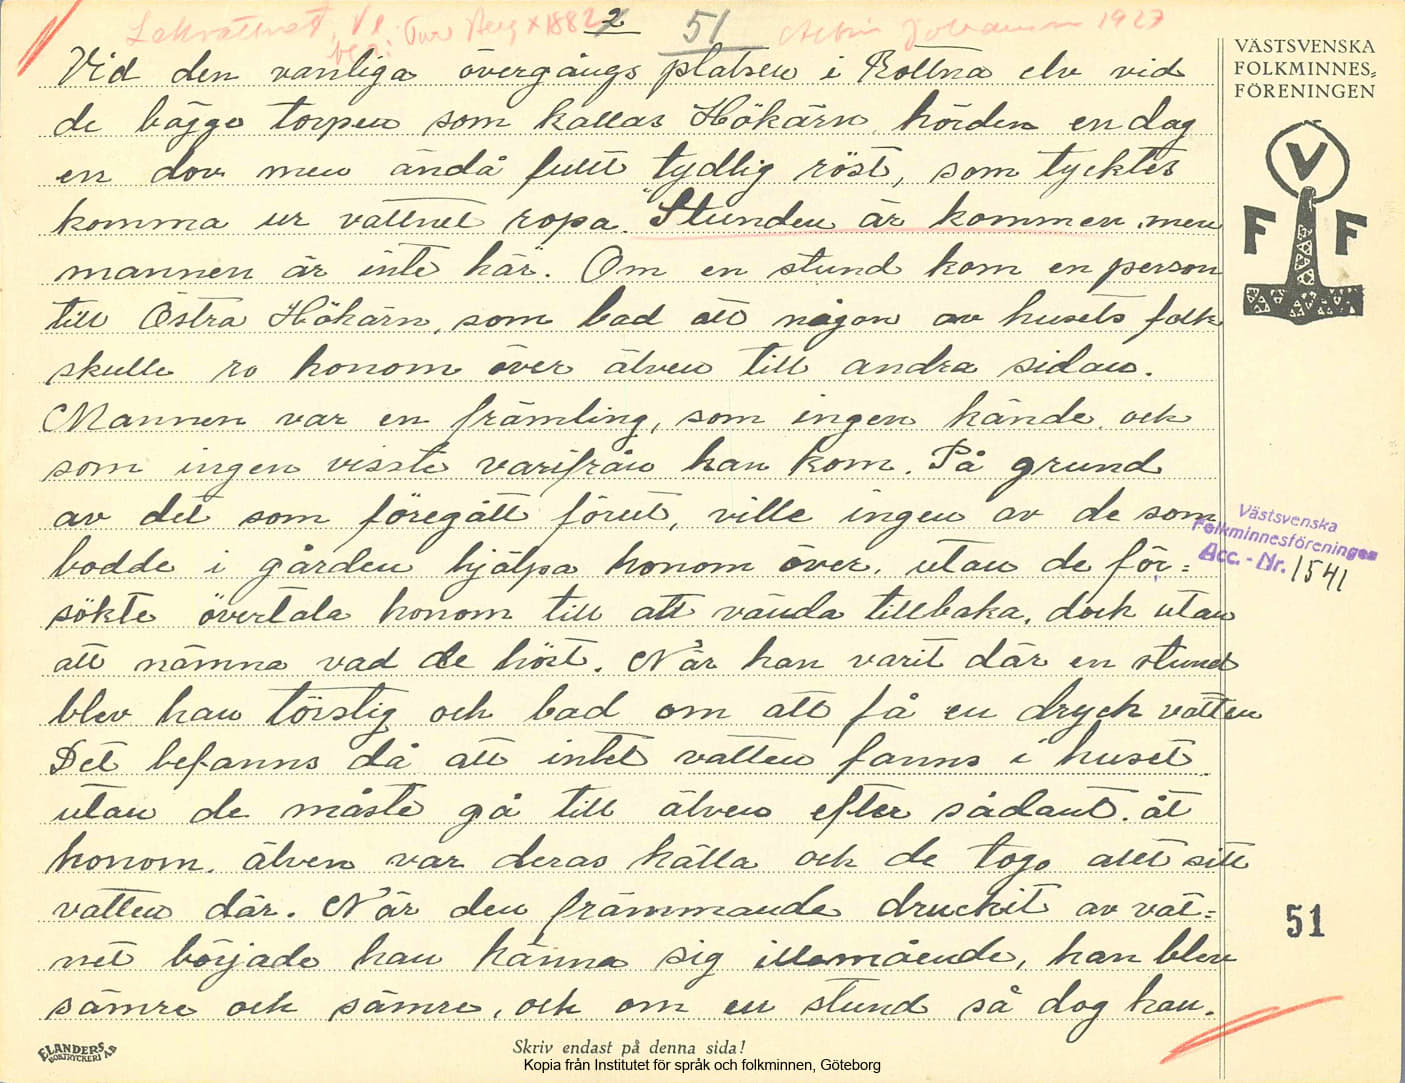 Lekvattnet, Vl. 2 51 1927
VÄSTSVENSKA
FOLKMINNES-
FÖRENINGEN
V
F F
Vid den vanliga övergångs platsen i Rottna elv vid
de bägge torpen som kallas Hökärn, hörden en dag
en dov men ändå fullt tydlig röst, som tycktes
komma ur vattnet ropa. "Stunden är kommen, men
mannen är inte här. Om en stund kom en person
till Östra Hökärn, som bad att någon av husets folk
skulle ro honom över älven till andra sidan.
Mannen var en främling, som ingen kände, och
som ingen visste varifrån han kom. På grund
av det som föregått förut, ville ingen av de som
bodde i gården hjälpa honom över, utan de för=
sökte övertala honom till att vända tillbaka, dock utan
att nämna vad de hört. När han varit där en stund
blev han törstig och bad om att få en dryck vatten
Det befanns då att intet vatten fanns i huset
utan de måste gå till älven efter sådant åt
honom. älven var deras källa och de togo allt sitt
vatten där. När den främmande druckit av vat=
net började han känna sig illamående, han blev
sämre och sämre, och om en stund så dog han.
Västsvenska
Folkminnesföreningen
Acc. - Nr. 1541
51
ELANDERS
BOKTRYCKERI AB
Skriv endast på denna sida!
Kopia från Institutet för språk och folkminnen, Göteborg